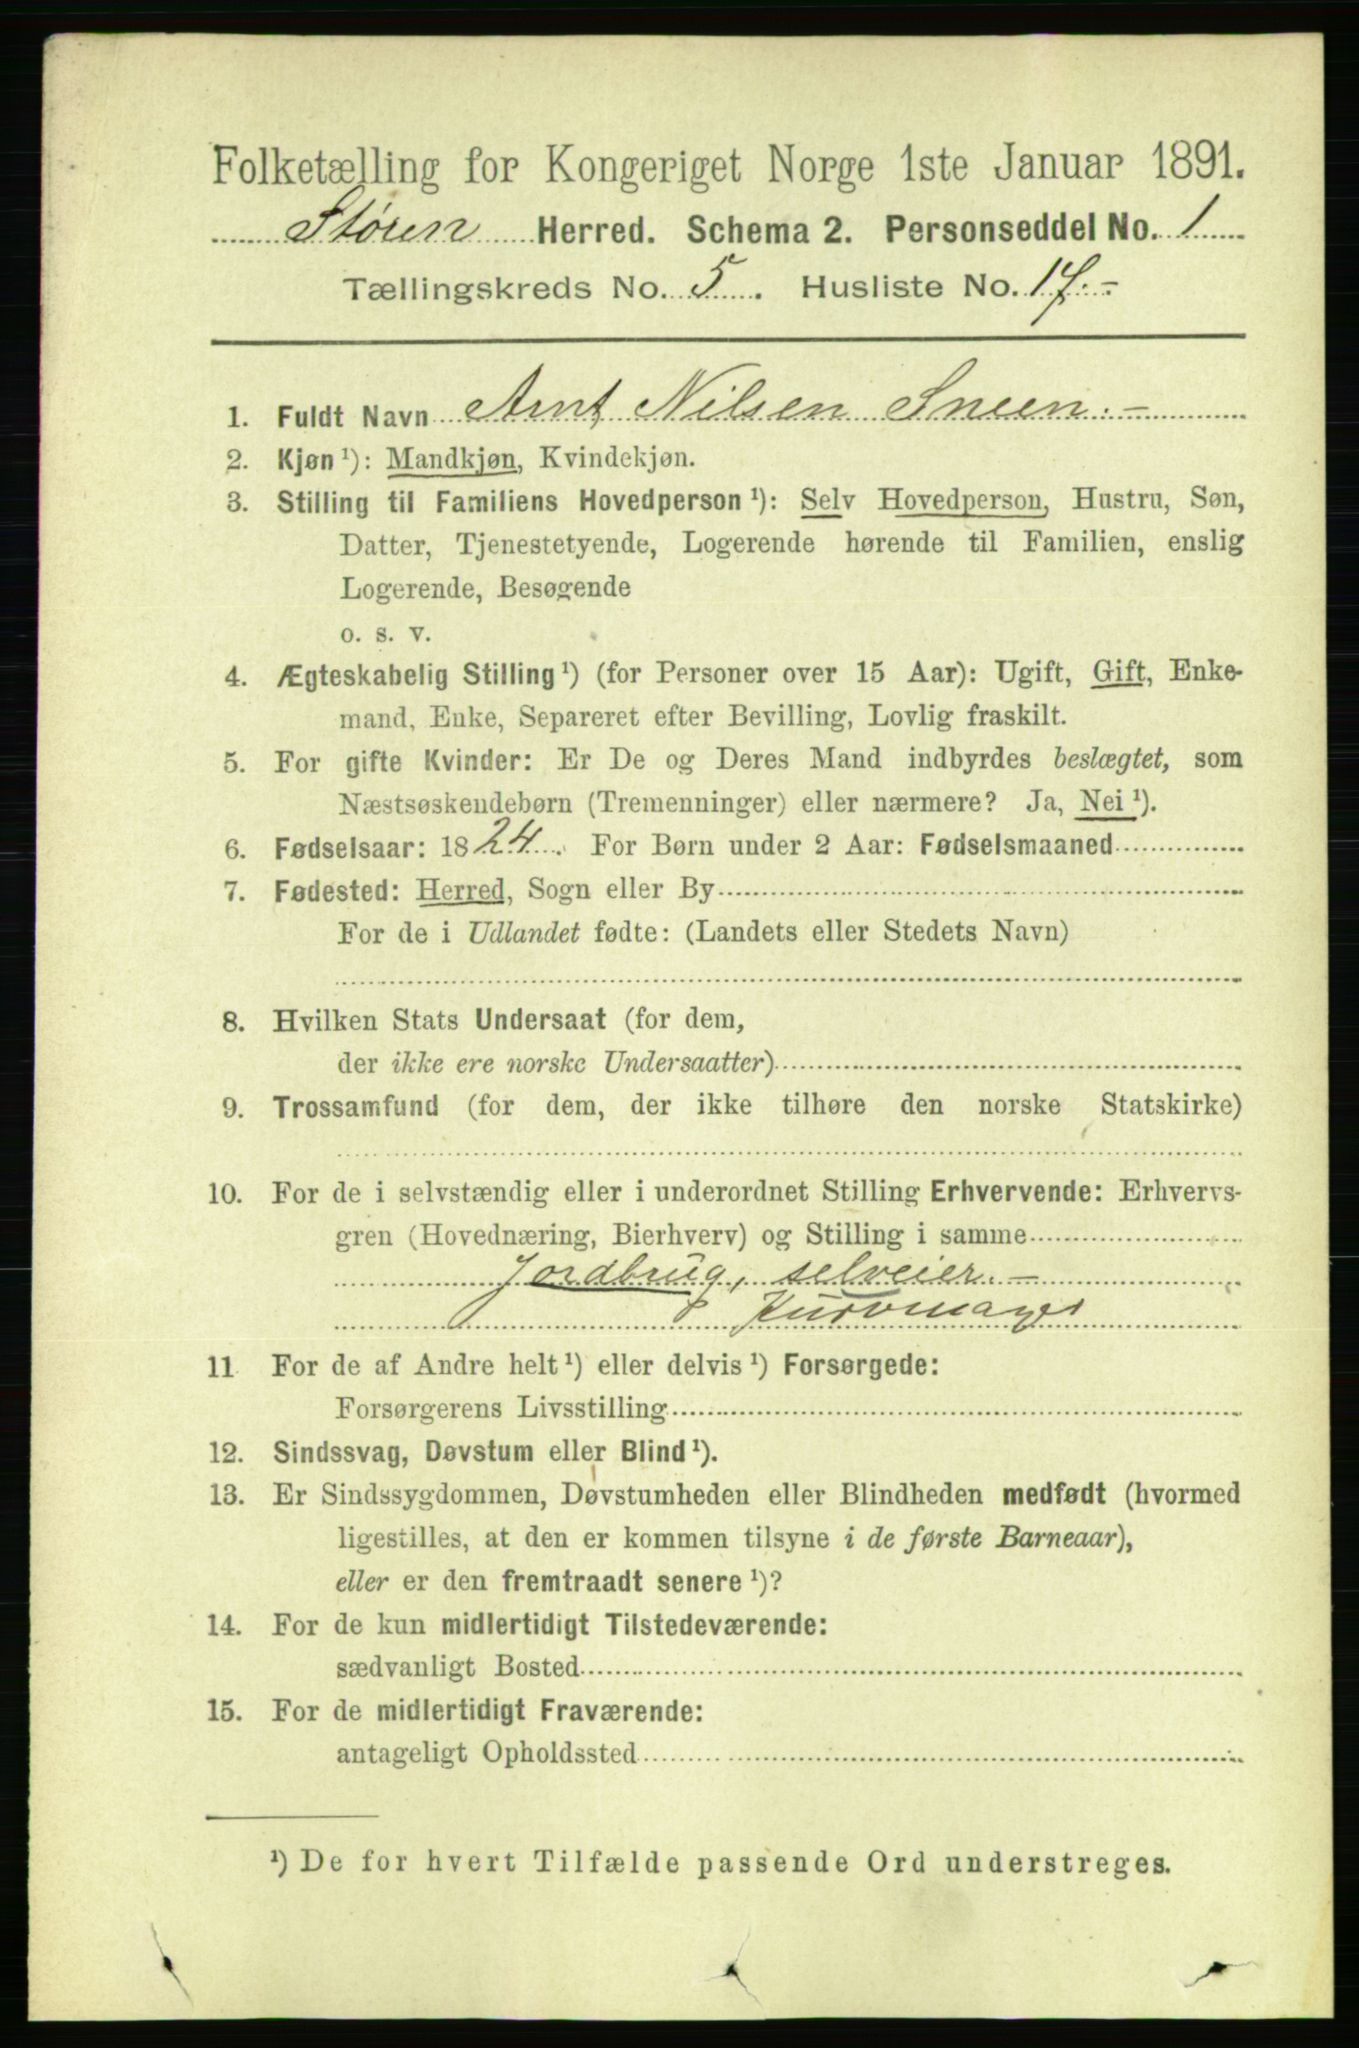 Folketælling for Kongeriget Norge 1ste Januar 1891.
Støren Herred. Schema 2. Personseddel No. 1
Tællingskreds No. 5. Husliste No. 17.-
1. Fuldt Navn Arnt Nilsen Sneen.-
2. Kjøn¹): Mandkjøn, Kvindekjøn.
3. Stilling til Familiens Hovedperson¹): Selv Hovedperson, Hustru, Søn,
Datter, Tjenestetyende, Logerende hørende til Familien, enslig
Logerende, Besøgende
o. s. v.
4. Ægteskabelig Stilling¹) (for Personer over 15 Aar): Ugift, Gift, Enke-
mand, Enke, Separeret efter Bevilling, Lovlig fraskilt.
5. For gifte Kvinder: Er De og Deres Mand indbyrdes beslægtet, som
Næstsøskendebørn (Tremenninger) eller nærmere? Ja, Nei¹).
6. Fødselsaar: 1824. For Børn under 2 Aar: Fødselsmaaned
7. Fødested: Herred, Sogn eller By
For de i Udlandet fødte: (Landets eller Stedets Navn)
8. Hvilken Stats Undersaat (for dem,
der ikke ere norske Undersaatter)
9. Trossamfund (for dem, der ikke tilhøre den norske Statskirke)
10. For de i selvstændig eller i underordnet Stilling Erhvervende: Erhvervs-
gren (Hovednæring, Bierhverv) og Stilling i samme
Jordbrug, selveier.-
Kurvmager
11 For de af Andre helt¹) eller delvis¹) Forsørgede:
Forsørgerens Livsstilling
12. Sindssvag, Døvstum eller Blind¹).
13. Er Sindssygdommen, Døvstumheden eller Blindheden medfødt (hvormed
ligestilles, at den er kommen tilsyne i de første Barneaar),
eller er den fremtraadt senere¹)?
14. For de kun midlertidigt Tilstedeværende:
sædvanligt Bosted
15. For de midlertidigt Fraværende:
antageligt Opholdssted
¹) De for hvert Tilfælde passende Ord understreges.